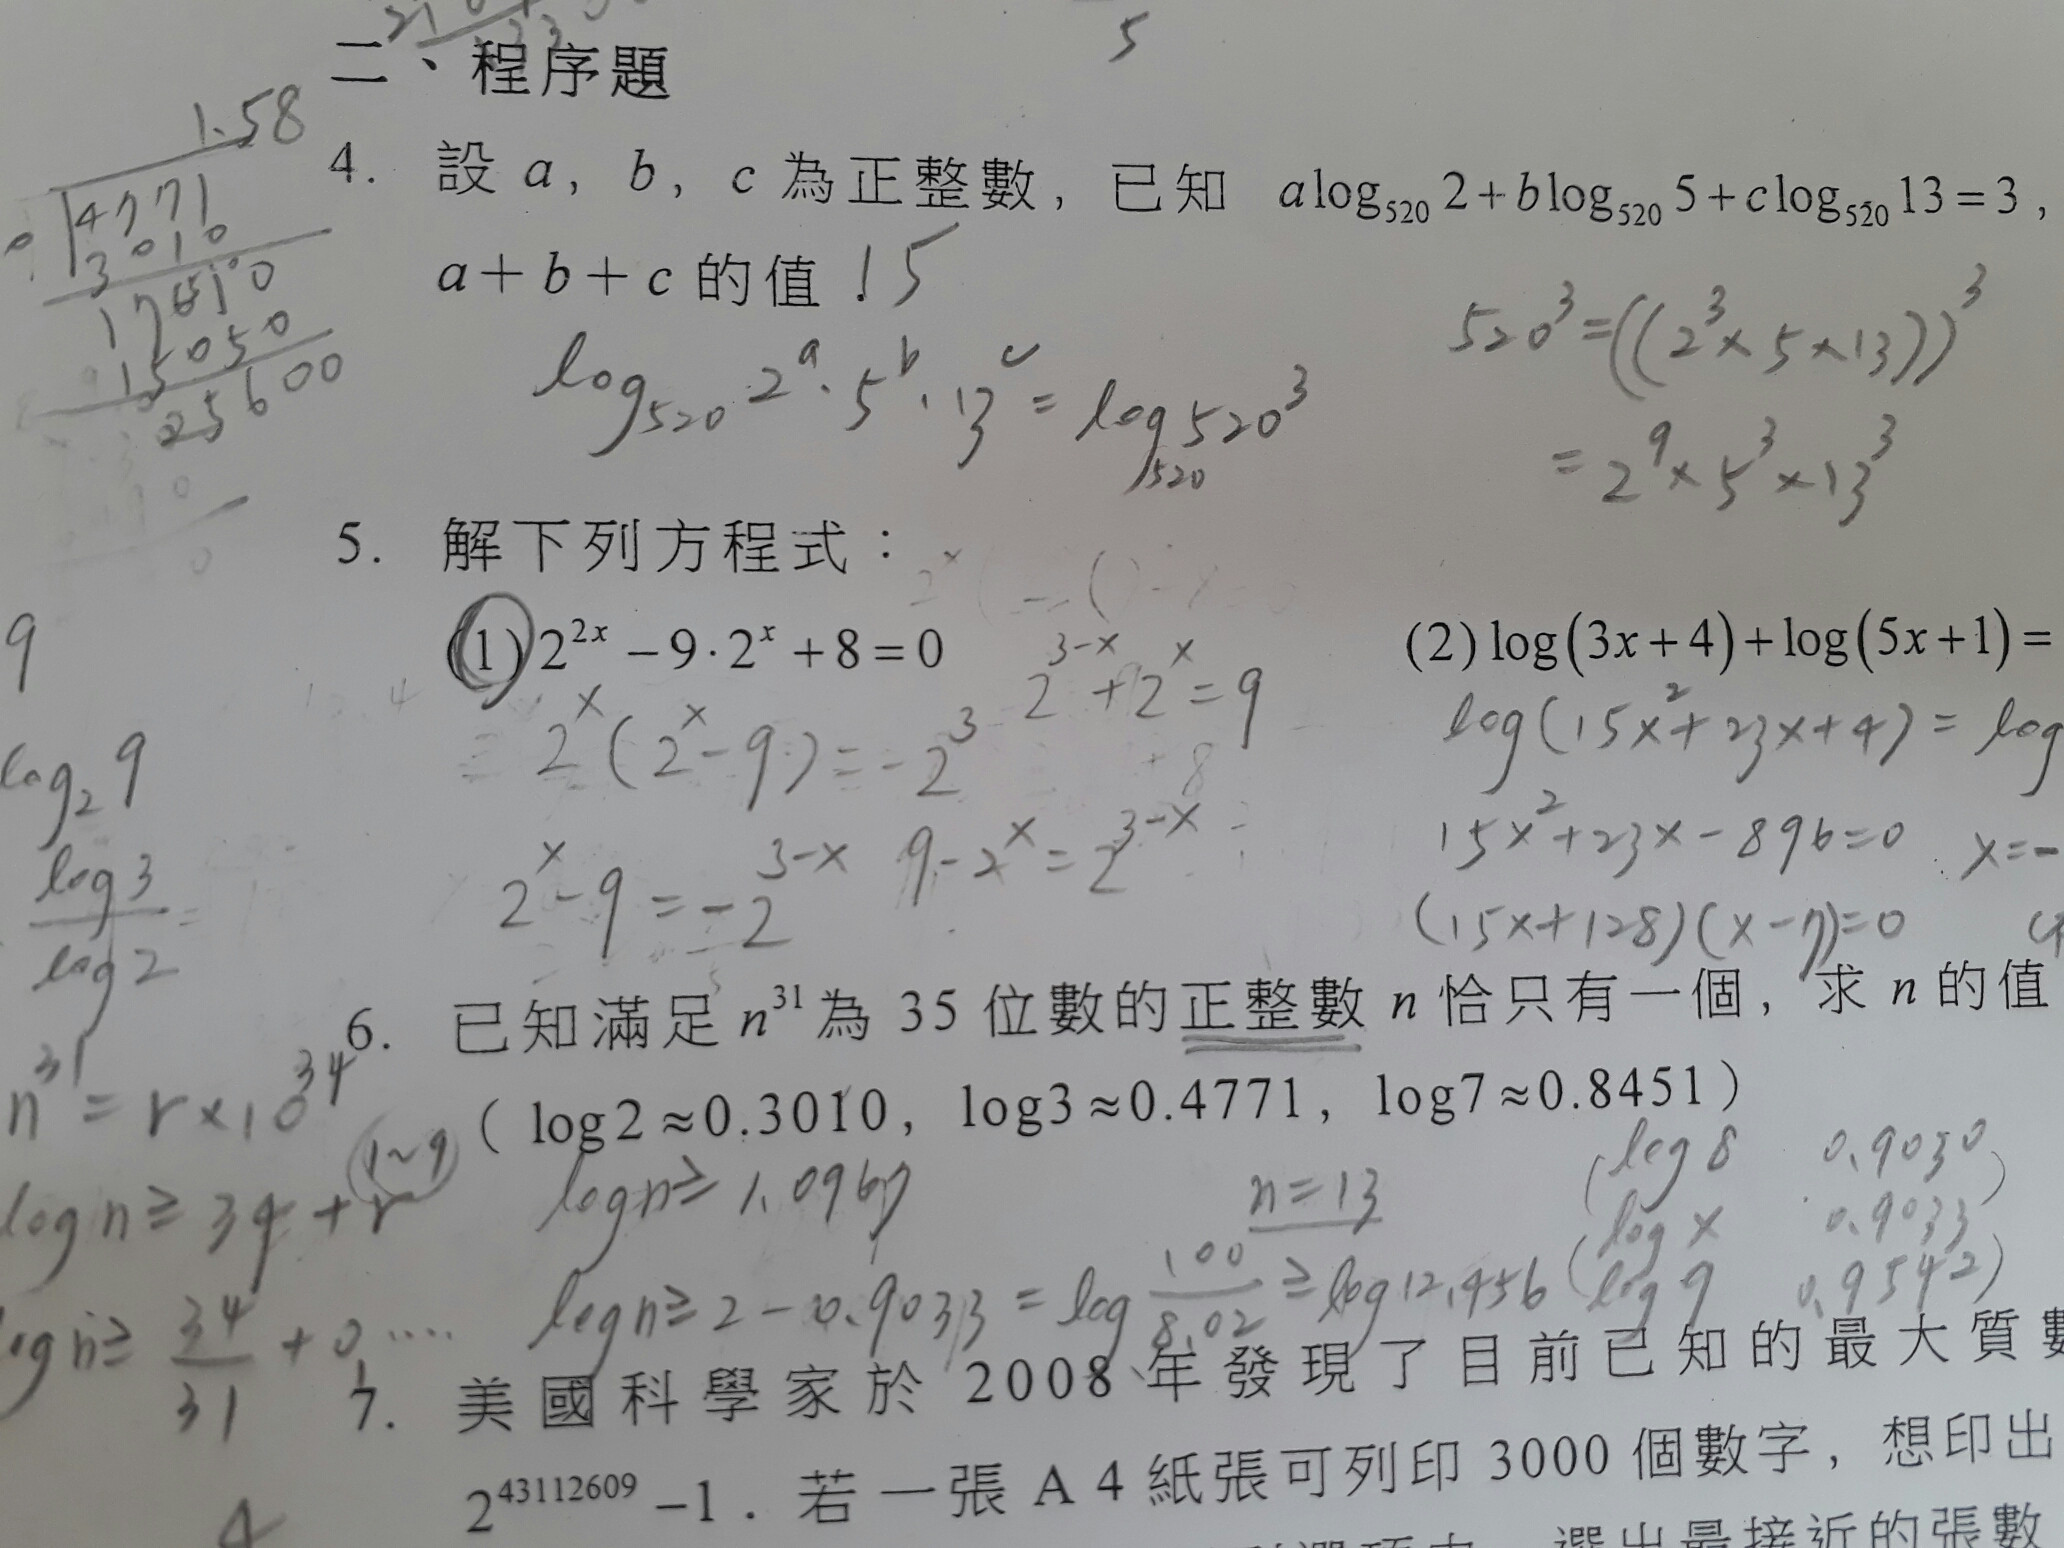 5
二、程序題
1.58
4771
3010
17610
15050
25600
4. 設 a, b, c 為正整數, 已知 a log₅₂₀ 2 + b log₅₂₀ 5 + c log₅₂₀ 13 = 3,
a + b + c 的值 15
520³ = ((2³×5×13))³
log₅₂₀ 2ᵃ·5ᵇ·13ᶜ = log₅₂₀ 520³
= 2⁹×5³×13³
5. 解下列方程式：
(1) 2²ˣ − 9·2ˣ + 8 = 0
2³⁻ˣ + 2ˣ = 9
2ˣ(2ˣ−9) = −2³
2ˣ−9 = −2³⁻ˣ 9−2ˣ = 2³⁻ˣ
(2) log(3x+4) + log(5x+1) =
log(15x²+23x+4) = log
15x²+23x−896=0 x=−
(15x+128)(x−7)=0
9
log₂9
log3
log2
6. 已知滿足 n³¹ 為 35 位數的正整數 n 恰只有一個, 求 n 的值
( log2≈0.3010, log3≈0.4771, log7≈0.8451 )
n³¹ = r×10³⁴
(1~9)
log n ≥ 34 + r
log n ≥ 34/31 + 0....
log n ≥ 1.0967
n=13
log n ≥ 2 − 0.9033 = log 100/8.02 ≥ log 12.456
log 8 0.9030
log x 0.9033
log 9 0.9542
7. 美國科學家於 2008 年發現了目前已知的最大質數
2⁴³¹¹²⁶⁰⁹ −1. 若一張 A4 紙張可列印 3000 個數字, 想印出
4
選出最接近的張數